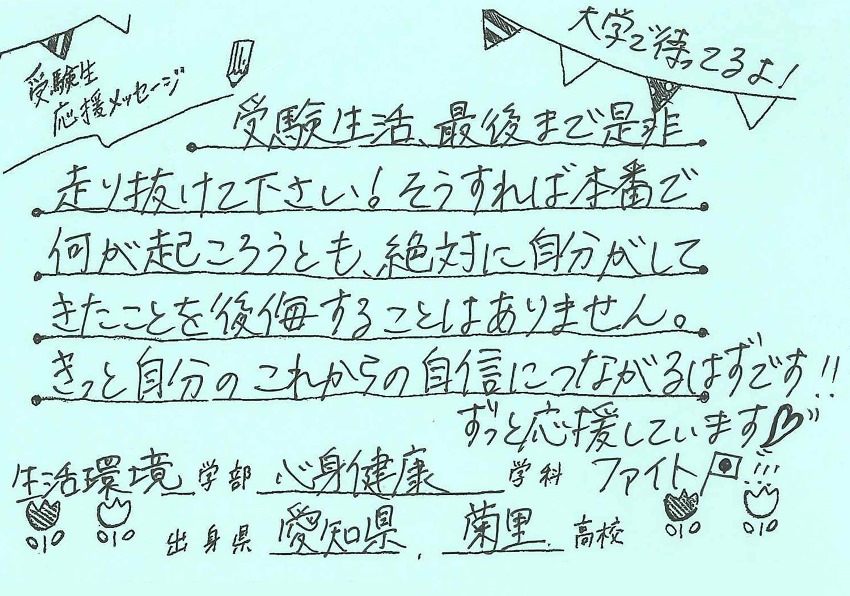 受験生
応援メッセージ
大学で待ってるよ!
受験生活、最後まで是非
走り抜けて下さい!そうすれば本番で
何が起ころうとも、絶対に自分がして
きたことを後悔することはありません。
きっと自分のこれからの自信につながるはずです!!
ずっと応援しています
ファイト!!!
生活環境学部 心身健康 学科
出身県 愛知県, 菊里 高校